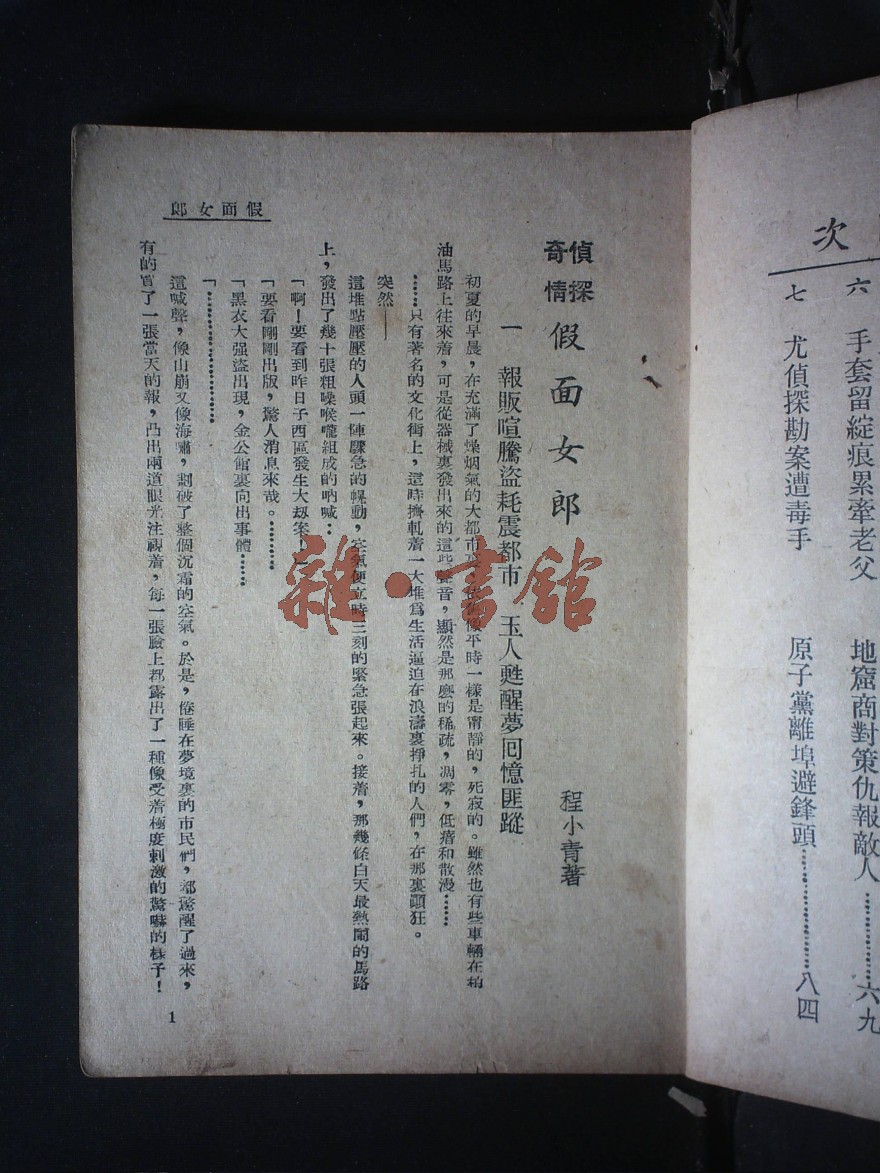 目次
六 手套留綻痕累牽老父 地窟商對策仇報敵人…………六九
七 尤偵探勘案遭毒手 原子黨離埠避鋒頭…………八四
假面女郎
偵探奇情 假面女郎
程小青著
一 報販喧騰盜耗震都市 玉人甦醒夢囘憶匪蹤
初夏的早晨,在充滿了燥烟氣的大都市 像平時一樣是甯靜的,死寂的。雖然也有些車輛在柏
油馬路上往來着,可是從器械裏發出來的這些聲音,顯然是那麽的稀疏,凋零,低瘖和散漫……
……只有著名的文化街上,這時擠軋着一大堆爲生活逼迫在浪濤裏掙扎的人們,在那裏顚狂。
突然——
這堆點壓壓的人頭一陣驟急的轟動,空氣便立時三刻的緊急張起來。接着,那幾條白天最熱鬧的馬路
上,發出了幾十張粗噪喉嚨組成的吶喊:
「啊!要看到昨日子西區發生大刼案!」
「要看剛剛出版,驚人消息來哉。…………
「黑衣大强盜出現,金公館裏向出事體……
「…………………
這喊聲,像山崩又像海嘯,劃破了整個沉霜的空氣。於是,倦睡在夢境裏的市民們,都驚醒了過來,
有的買了一張當天的報,凸出兩道眼光注視着,每一張臉上都露出了一種像受着極度刺激的驚嚇的樣子!
1
雜·書館